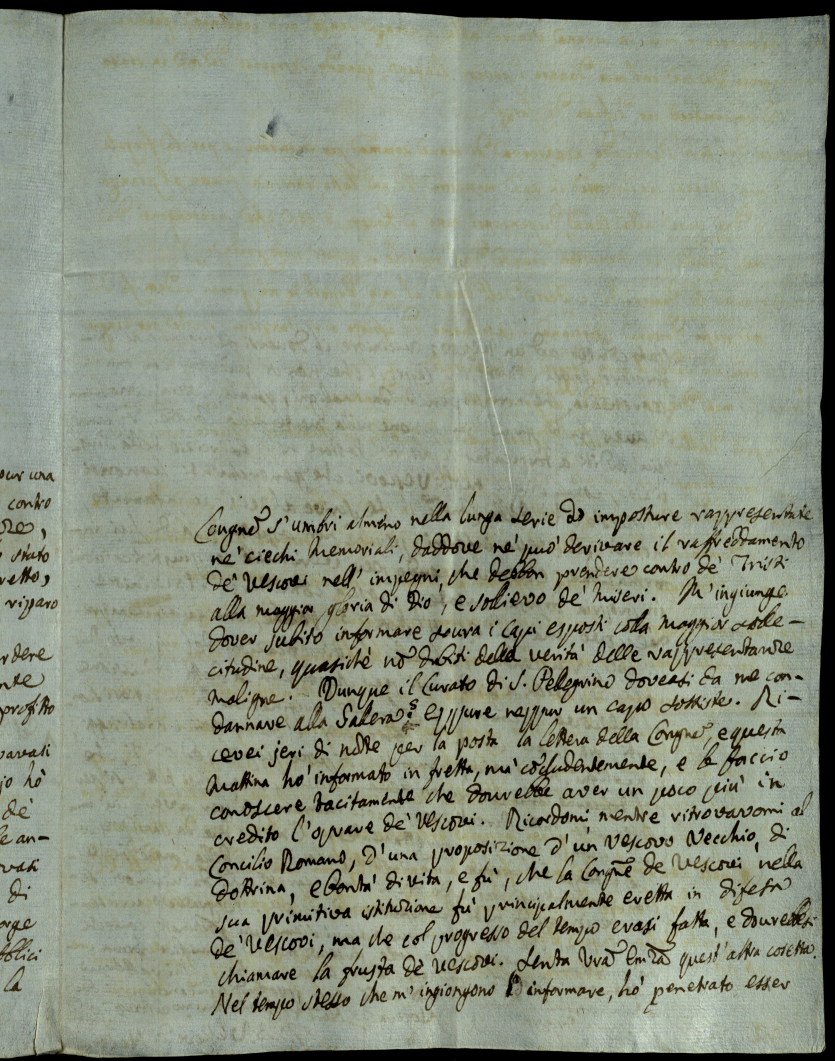 our una
contro
stato
retto,
riparo
rdere
nte
profitto
javo ho
de'
le an-
vati
di
orge
bblici
la
Congne s'umbri almeno nella lunga serie di imposture rappresentate
ne' ciechi Memoriali, daddove ne può derivare il raffreddamento
de' Vescovi nell' impegni, che debbon prendere contro de' Tristi
alla maggior gloria di Dio, e sollievo de' miseri. M'ingiunge
dover subito informare sovra i capi esposti colla maggior solle-
citudine, quasiché nò dubiti della verità delle rappresentanze
maligne. Dunque il Curato di S. Pelegrino doveasi da me con-
dannare alla Galera? Eppure neppur un capo sossiste. Ri-
cevei jeri di notte per la posta la lettera della Congne, e questa
mattina ho' informato in fretta, ma cò'cludentemente, e le faccio
conoscere tacitamente che dovrebbe aver un poco più in
credito l'oprare de' Vescovi. Ricordomi mentre ritrovavomi al
Concilio Romano, d'una proposizione d'un Vescovo Vecchio, di
dottrina, e bontà di vita, e fù, che la Congne de Vescovi nella
sua primitiva istituzione fù principalmente eretta in difesa
de' Vescovi, ma che col progresso del tempo erasi fatta, e dovrebbesi
chiamare la frusta de' Vescovi. Senta Vra Emza quest'altra cosetta.
Nel tempo stesso che m'ingiongono d'informare, ho' penetrato esser